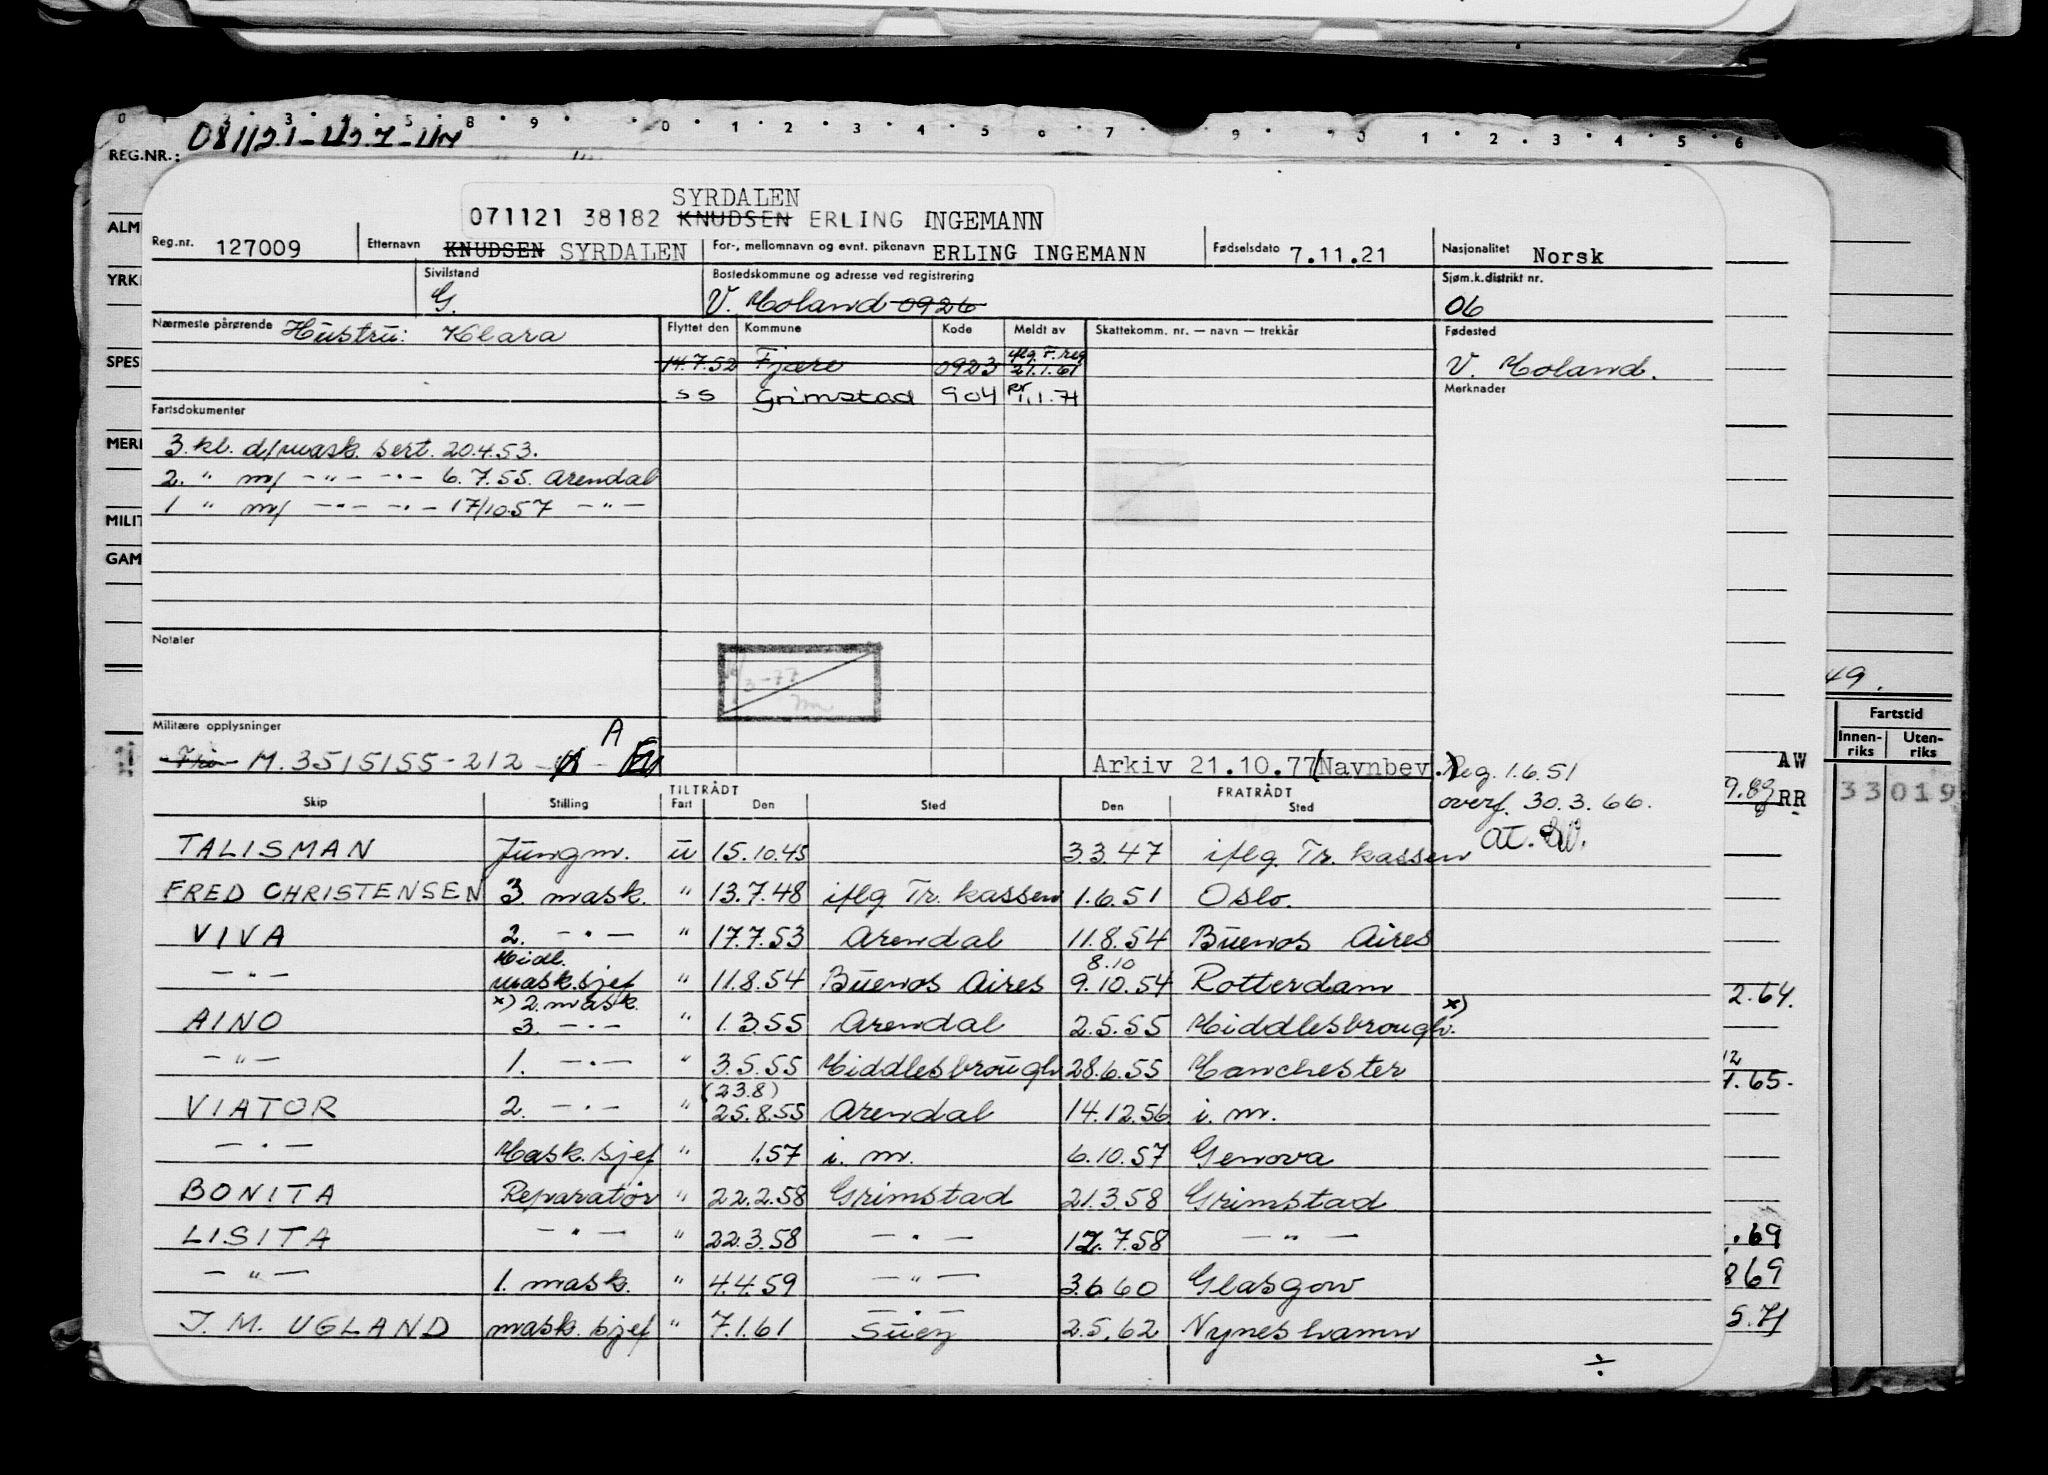 REG.NR.: 081121-
SYRDALEN
071121 38182 KNUDSEN ERLING INGEMANN
Reg.nr. 127009 Etternavn KNUDSEN SYRDALEN For-, mellomnavn og evnt. pikenavn ERLING INGEMANN Fødselsdato 7.11.21 Nasjonalitet Norsk
Sivilstand G. Bostedskommune og adresse ved registrering V. Moland 0926 Sjøm.k.distrikt nr. 06
Nærmeste pårørende Hustru: Klara Flyttet den Kommune Kode Meldt av Skattekomm. nr. — navn — trekkår Fødested
14.7.52 Fjære 0923 iflg. F. reg 21.1.61 V. Moland.
ss Grimstad 904 pr 1.1.71 Merknader
Fartsdokumenter
3. kl. d/mask. sert. 20.4.53.
2. " m/ -"- -"- 6.7.55. Arendal
1 " m/ -"- -"- 17/10.57 -"-
Notater
3-77
Militære opplysninger
Fri M.3515155-212 A
Arkiv 21.10.77(Navnbev.) Reg. 1.6.51
overf. 30.3.66.
Skip Stilling TILTRÅDT Fart Den Sted FRATRÅDT Den Sted
TALISMAN Jungm. u 15.10.45 3.3.47 iflg. Tr. kassen
FRED CHRISTENSEN 3. mask. " 13.7.48 iflg Tr. kassen 1.6.51 Oslo.
VIVA 2. -"- " 17.7.53 Arendal 11.8.54 Buenos Aires
-"- Midl. mask.sjef " 11.8.54 Buenos Aires 8.10 9.10.54 Rotterdam
AINO x) 2. mask. 3. -"- " 1.3.55 Arendal 2.5.55 Middlesbrough. x)
-"- 1. -"- " 3.5.55 Middlesbrough 28.6.55 Manchester
VIATOR 2. -"- " (23.8) 25.8.55 Arendal 14.12.56 i. m.
-"- Mask. sjef " 1.57 i. m. 6.10.57 Genova
BONITA Reparatør " 22.2.58 Grimstad 21.3.58 Grimstad
LISITA -"- " 22.3.58 -"- 12.7.58 -"-
-"- 1. mask. " 4.4.59 -"- 3.6.60 Glasgow
J. M. UGLAND mask. sjef " 7.1.61 -"- Suez 2.5.62 Nyneshamn
÷
ALM
YRK
SPES
MER
MILIT
GAM
49.
Fartstid
Innen-riks Uten-riks
AW
RR
33019
2.64.
.65.
.69
869
5.71